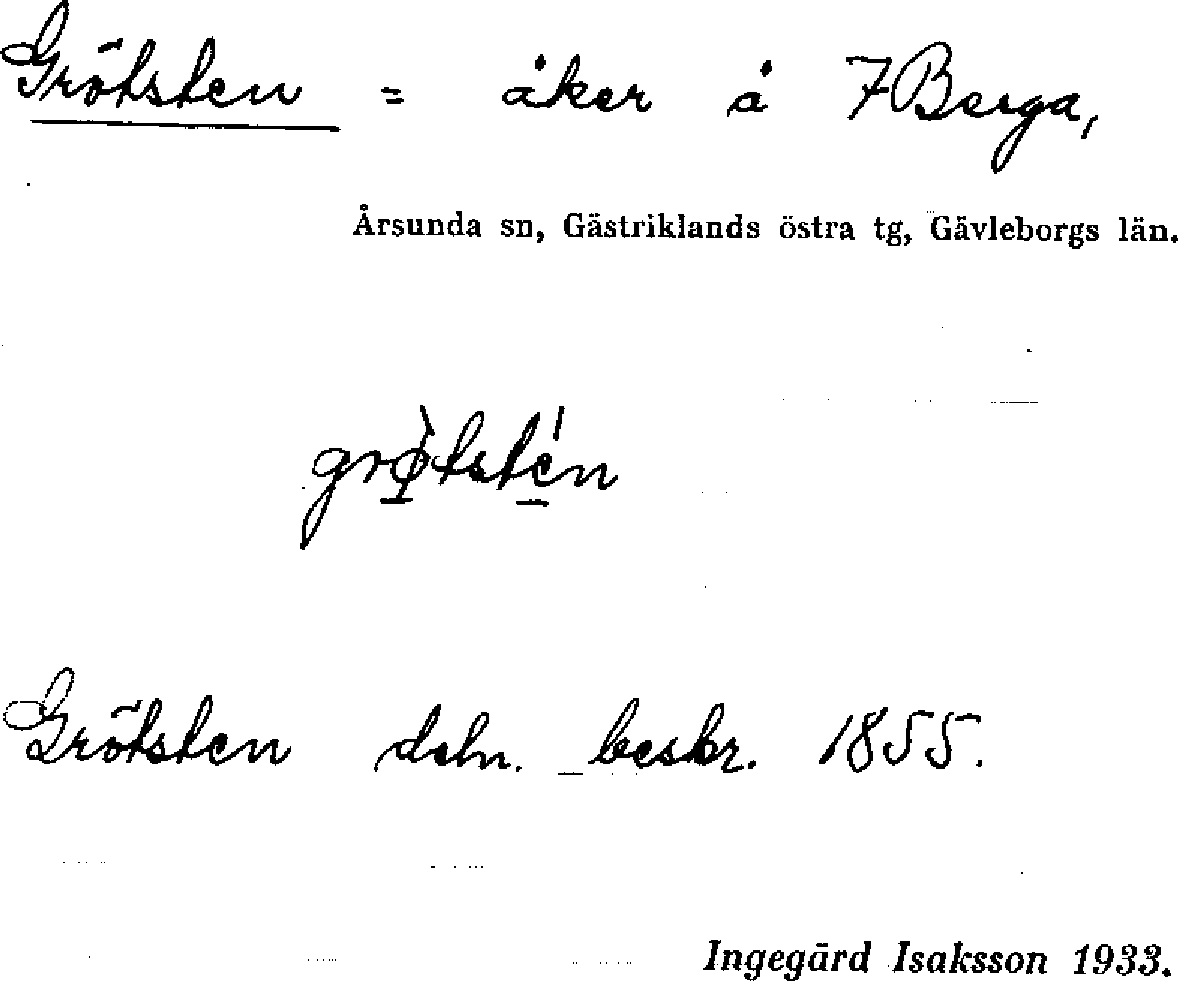 Grötsten = åker å 7 Berga,
Årsunda sn, Gästriklands östra tg, Gävleborgs län.
grø̀tstén
Grötsten deln. beskr. 1855.
Ingegärd Isaksson 1933.